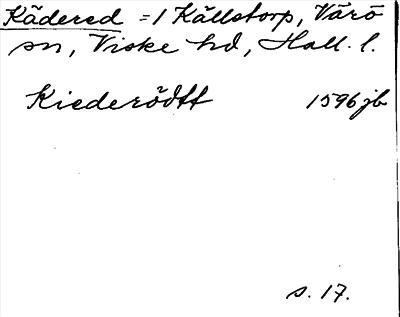 Kädered =1 Källstorp, Värö
sn, Viske hd, Hall. l.
Kiederödtt 1596 jb
s. 17.